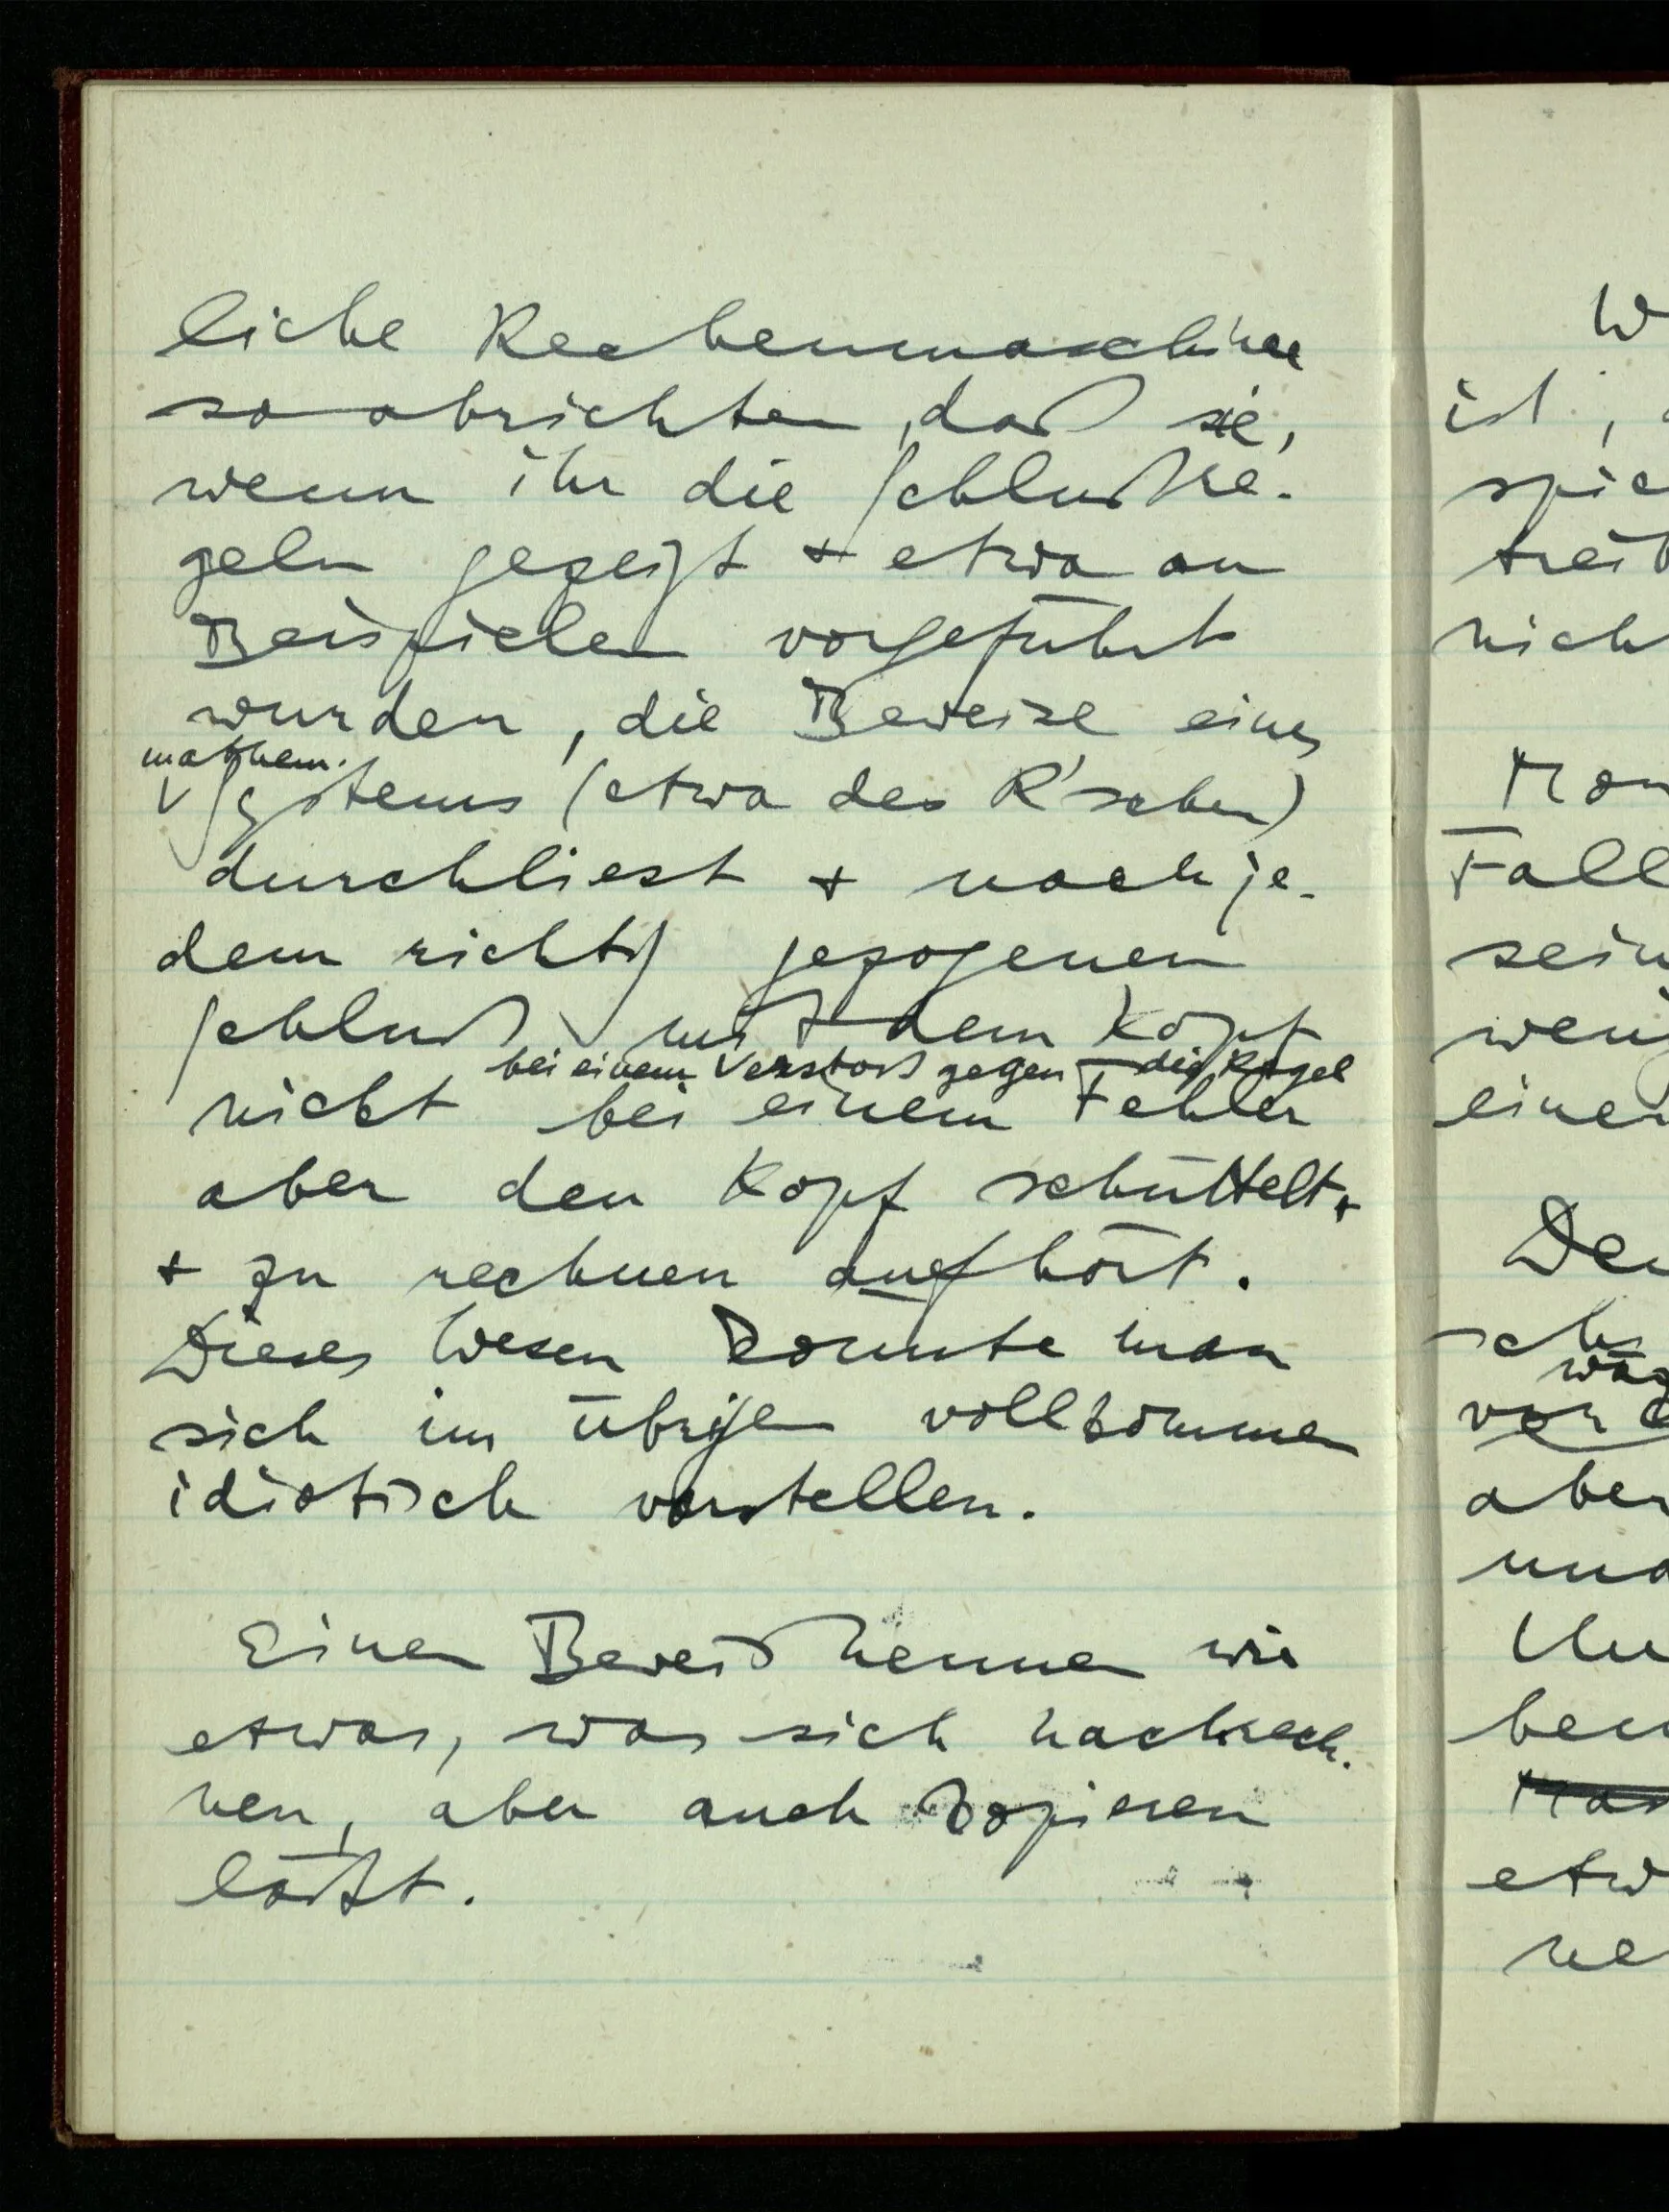 liche Rechenmaschine
so abrichten, daß sie,
wenn ihr die Schlußre-
geln gezeigt + etwa an
Beispielen vorgeführt
wurden, die Beweise eines
mathem.
Systems (etwa des R'schen)
durchliest + nach je-
dem richtig gezogenen
Schluß mit dem Kopf
bei einem Verstoß gegen die Regel
nickt bei einem Fehler
aber den Kopf schüttelt +
+ zu rechnen aufhört.
Dieses Wesen konnte man
sich im übrigen vollkommen
idiotisch vorstellen.
Einen Beweis nennen wir
etwas, was sich nachrech-
nen, aber auch kopieren
läßt.
W
ist,
spie
treib
nich
Man
Fall
sein
weni
einen
De
sch
wä
vor
aber
und
Un
ben
Man
etw
ne